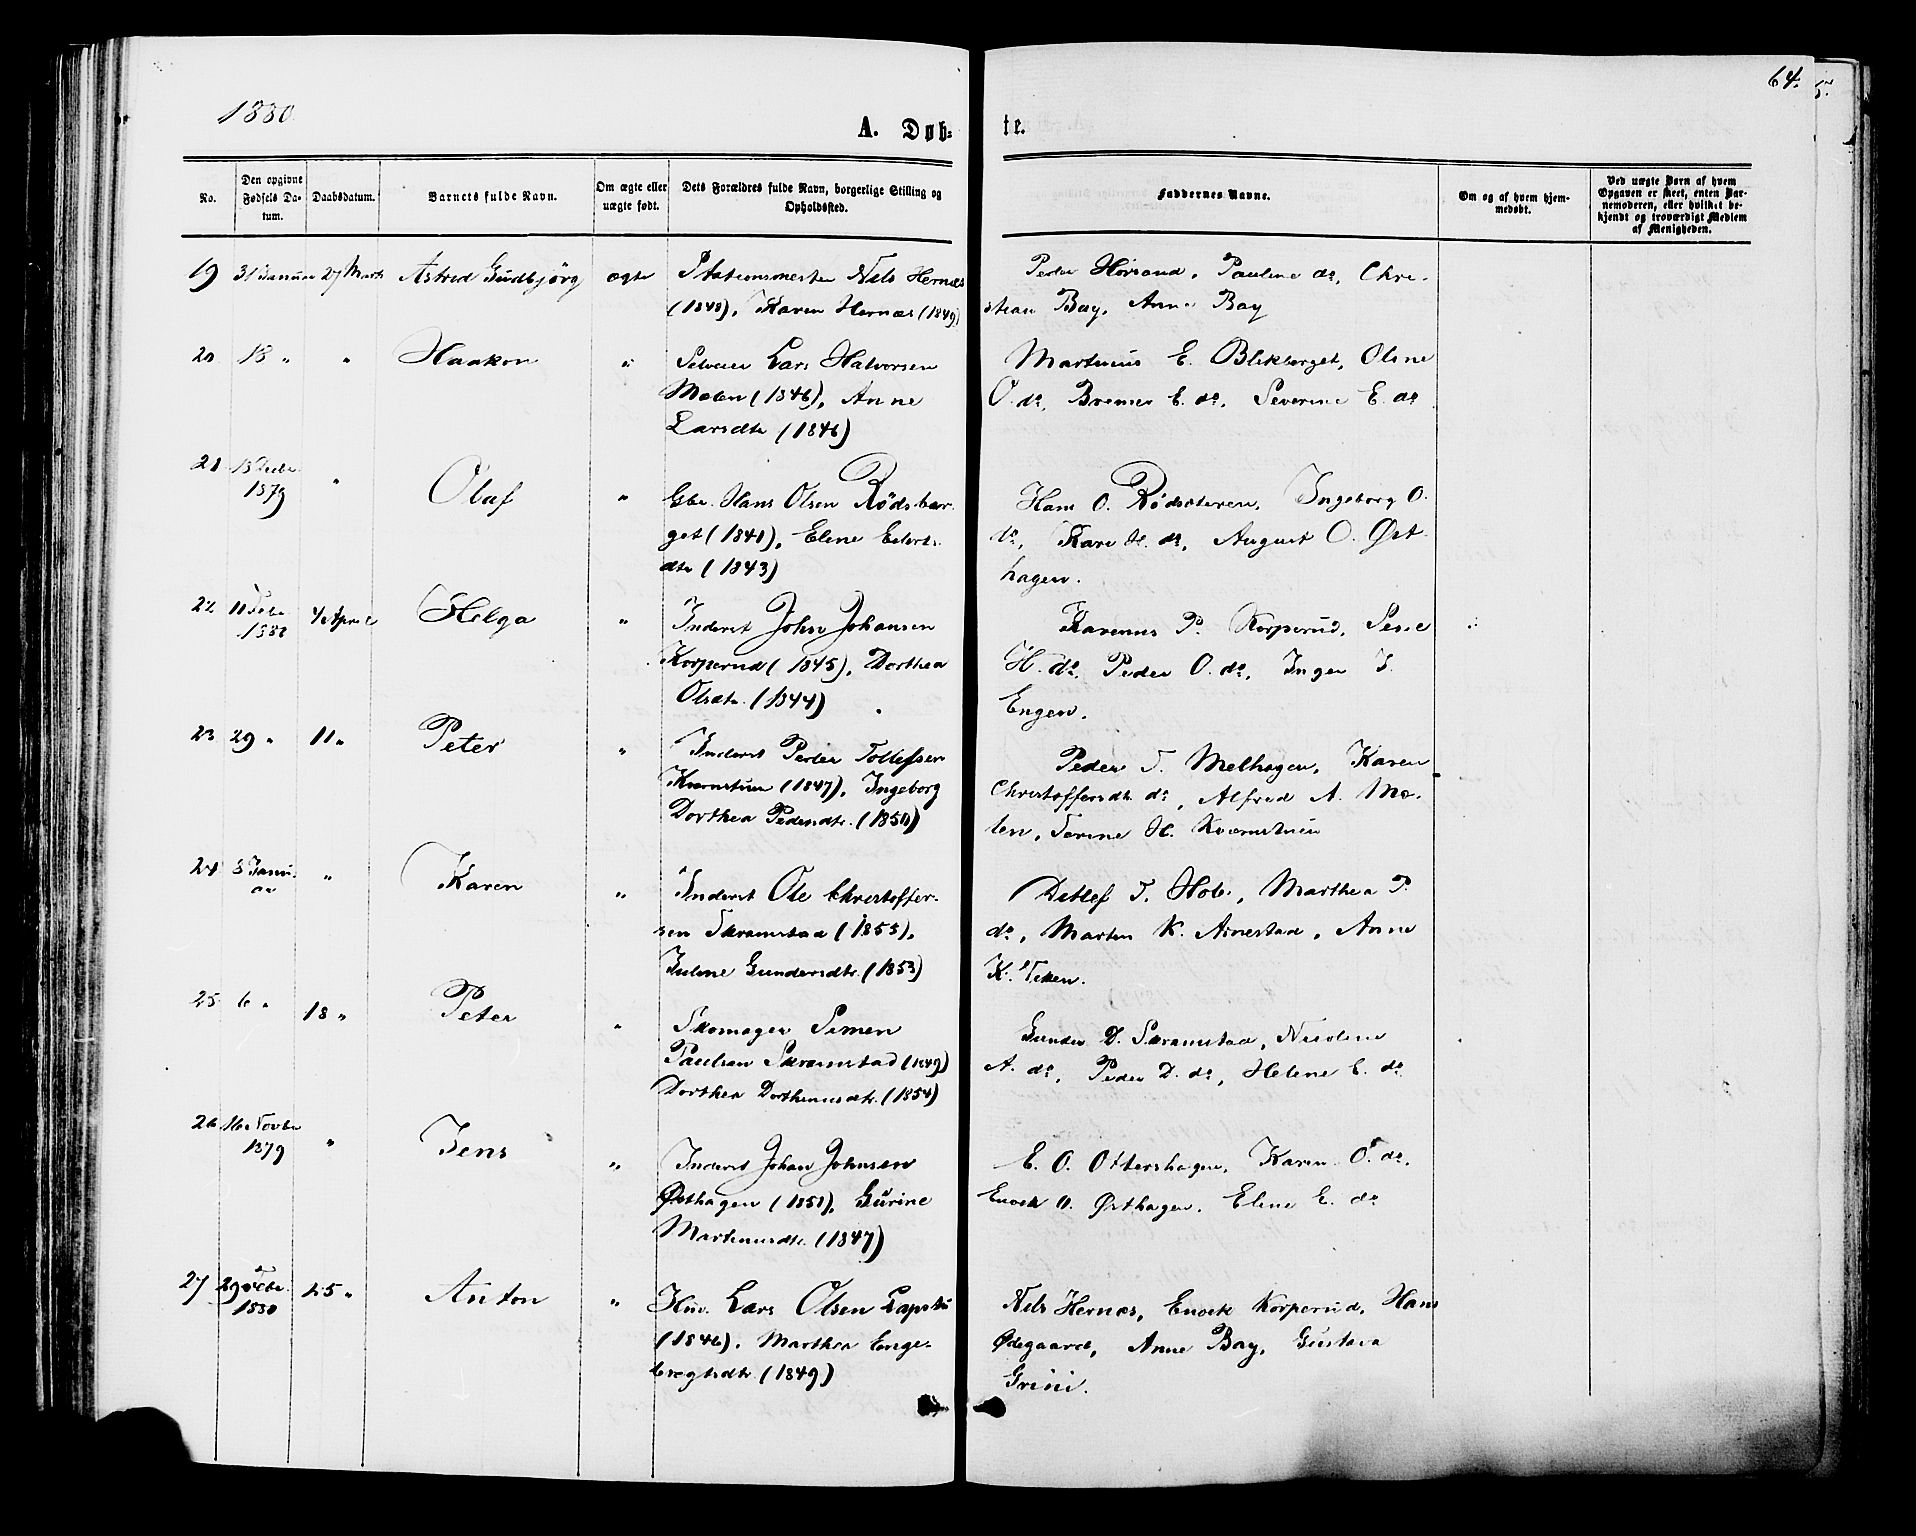 64.
1880.
A. Døb-
te.
No.
Den opgivne Fødsels Datum.
Daabsdatum.
Barnets fulde Navn.
Om ægte eller uægte født.
Dets Forældres fulde Navn, borgerlige Stilling og Opholdssted.
Faddernes Navne.
Om og af hvem hjemmedøbt.
Ved uægte Børn af hvem Opgaven er skeet, enten Barnemoderen, eller hvilket bekjendt og troværdigt Medlem af Menigheden.
19 31 Januar 27 Marts Astrid Gudbjörg ægte Stationsmester Nils Hernæs
(1848), Karen Hernæs (1849)
Peder Horsand, Pauline do, Chri-
stian Bay, Anne Bay
20 18 " " Haakon " Selveier Lars Halvorsen
Molen (1846), Anne
Larsdtr (1846)
Martinius E. Blekberget, Oline
O. do, Bremer E. do, Severine E. do
21 13 Decbr
1879 " Olaf " Gbr. Hans Olsen Rödsber-
get (1841), Eline Eilerts
dtr (1843)
Hans O. Rødsæteren, Ingeborg O.
do, Kari H. do, August O. Øst
hagen.
22 11 Febr
1880 4 April Helga " Inderst John Johansen
Korperud (1845), Dorthea
Olsdtr. (1844)
Karenus P. Korperud,
H. do, Peder O. do, Inger J.
Engen.
23 29 " 11 " Peter " Inderst Peder Tollefsen
Kværnstuen (1847), Ingeborg
Dorthea Pedersdtr. (1850)
Peder T. Melhagen, Karen
Christoffersdtr. do, Alfred A. Mo-
len, Terine H. Kværnstuen
24 8 Janu-
ar " Karen " Inderst Ole Christoffer-
sen Skramstad (1855),
Juline Gundersdtr. (1853)
Detlef T. Hob, Marthea P.
do, Martin K. Arnestad, Anne
K.
25 6 " 18 " Peter " Skomager Simen
Paulsen Skramstad (1849)
Dorthea Dorthenusdtr. (1854)
Gunder D. Skramstad, Nicoline
A. do, Peder D. do, Helene C. do
26 16 Novbr
1879 " Jens " Inderst Johan Johnsen
Østhagen (1851), Gurine
Martinusdtr. (1847)
E. O. Ottershagen, Karen O. do,
Enock O. Østhagen, Eline E. do
27 29 Febr
1880 25 " Anton " Huv. Lars Olsen Lapstu
(1846), Marthea Enge-
bregtsdtr. (1849)
Nils Hernæs, Enock Korperud, Hans
Ødegaard, Anne Bay, Gustava
Grini.